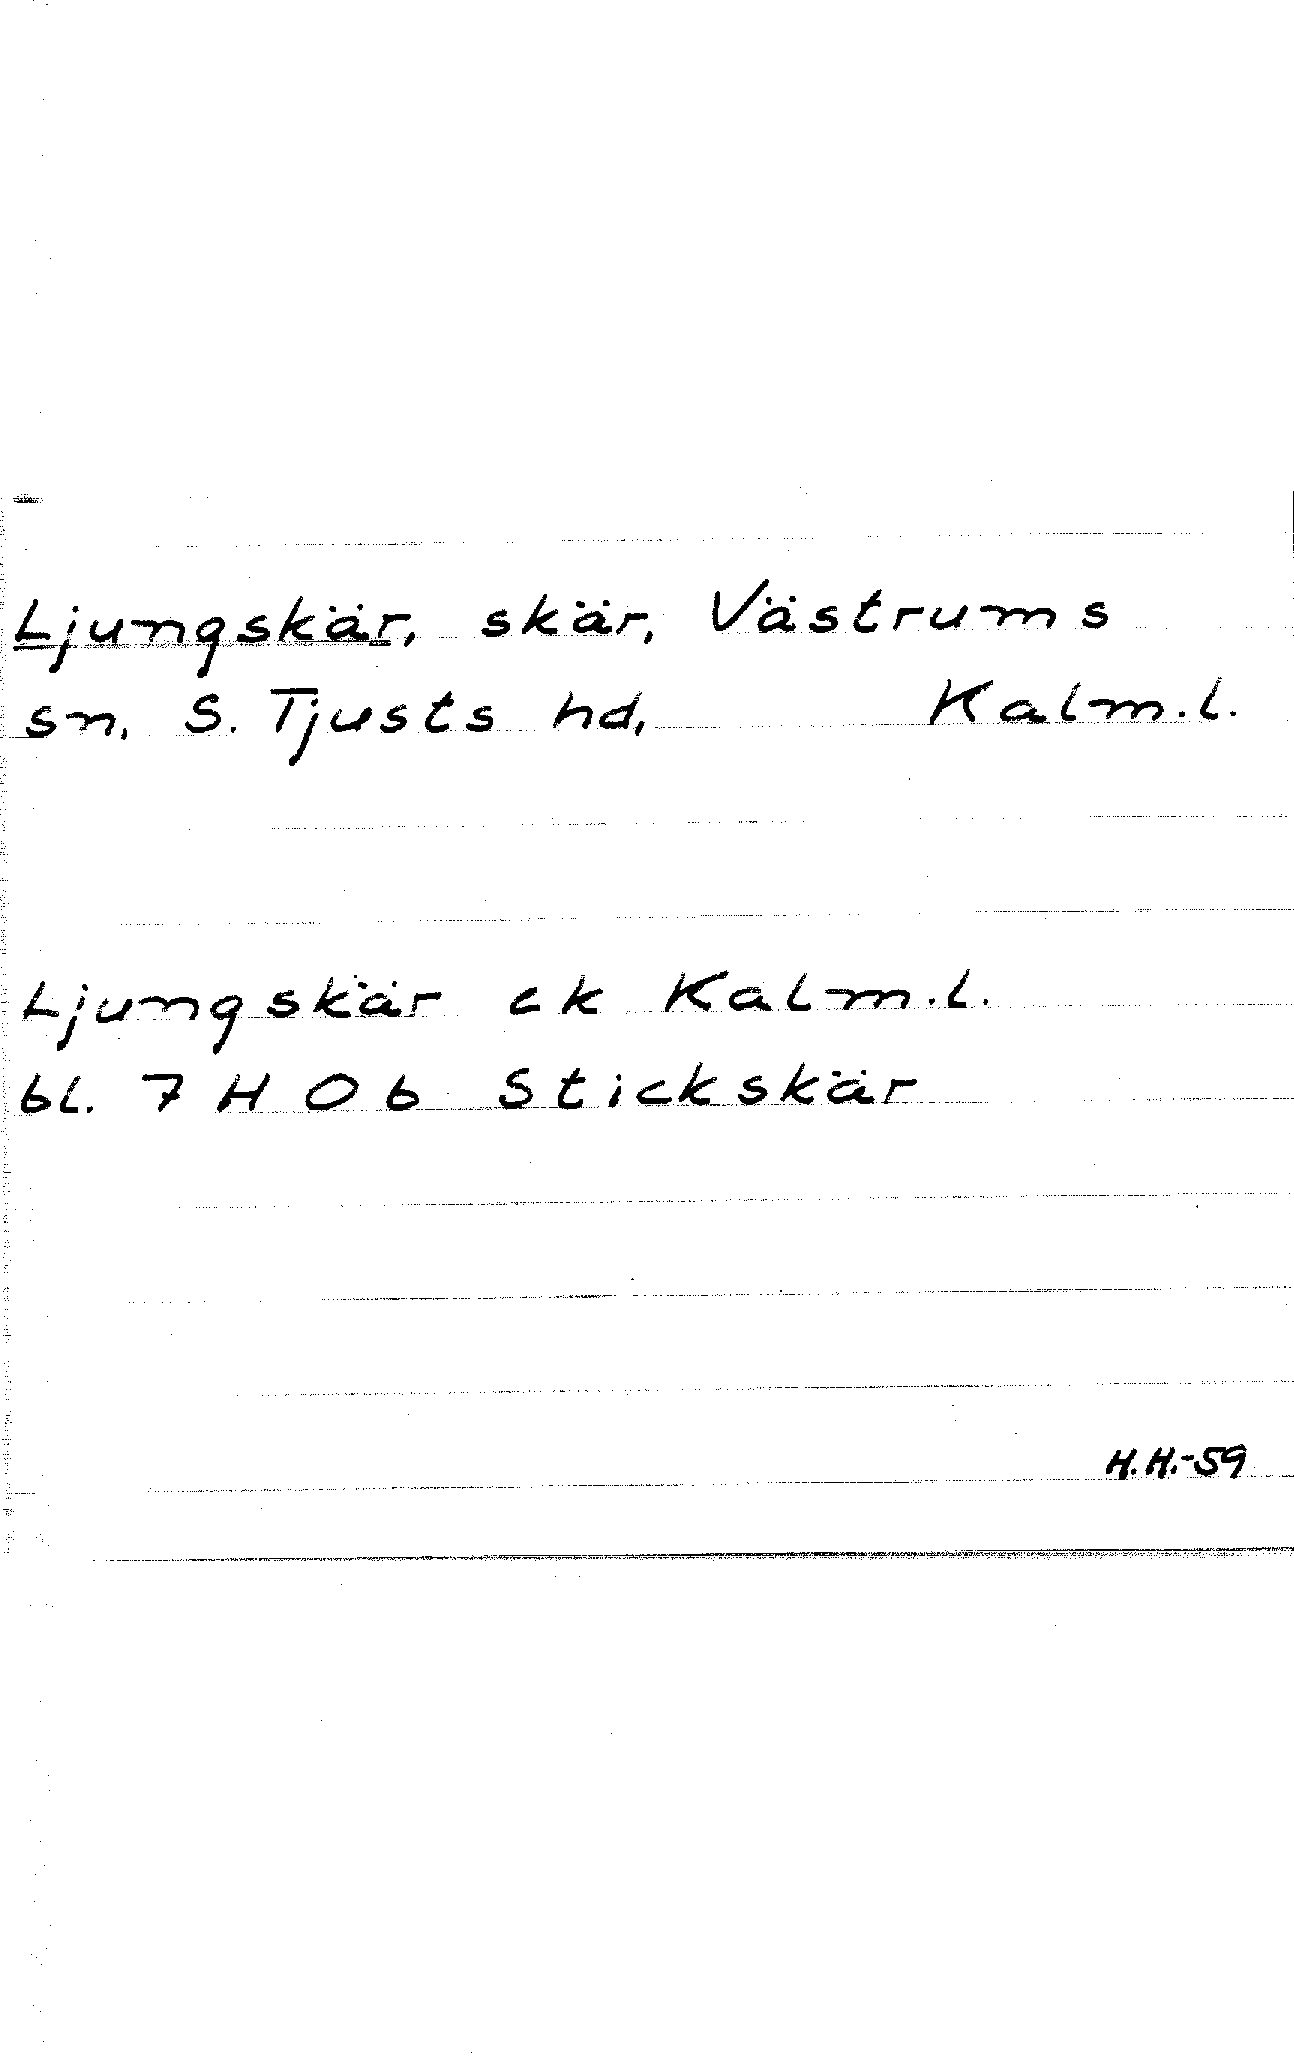 Ljungskär, skär, Västrums
sn, S. Tjusts hd, Kalm.l.
Ljungskär ek Kalm.l.
bl. 7 H 0 b Stickskär
H.H.-59